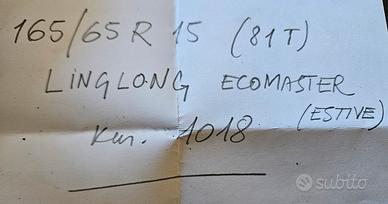 165/65 R 15 (81T)
LINGLONG ECOMASTER
(ESTIVE)
Km. 1018
subito